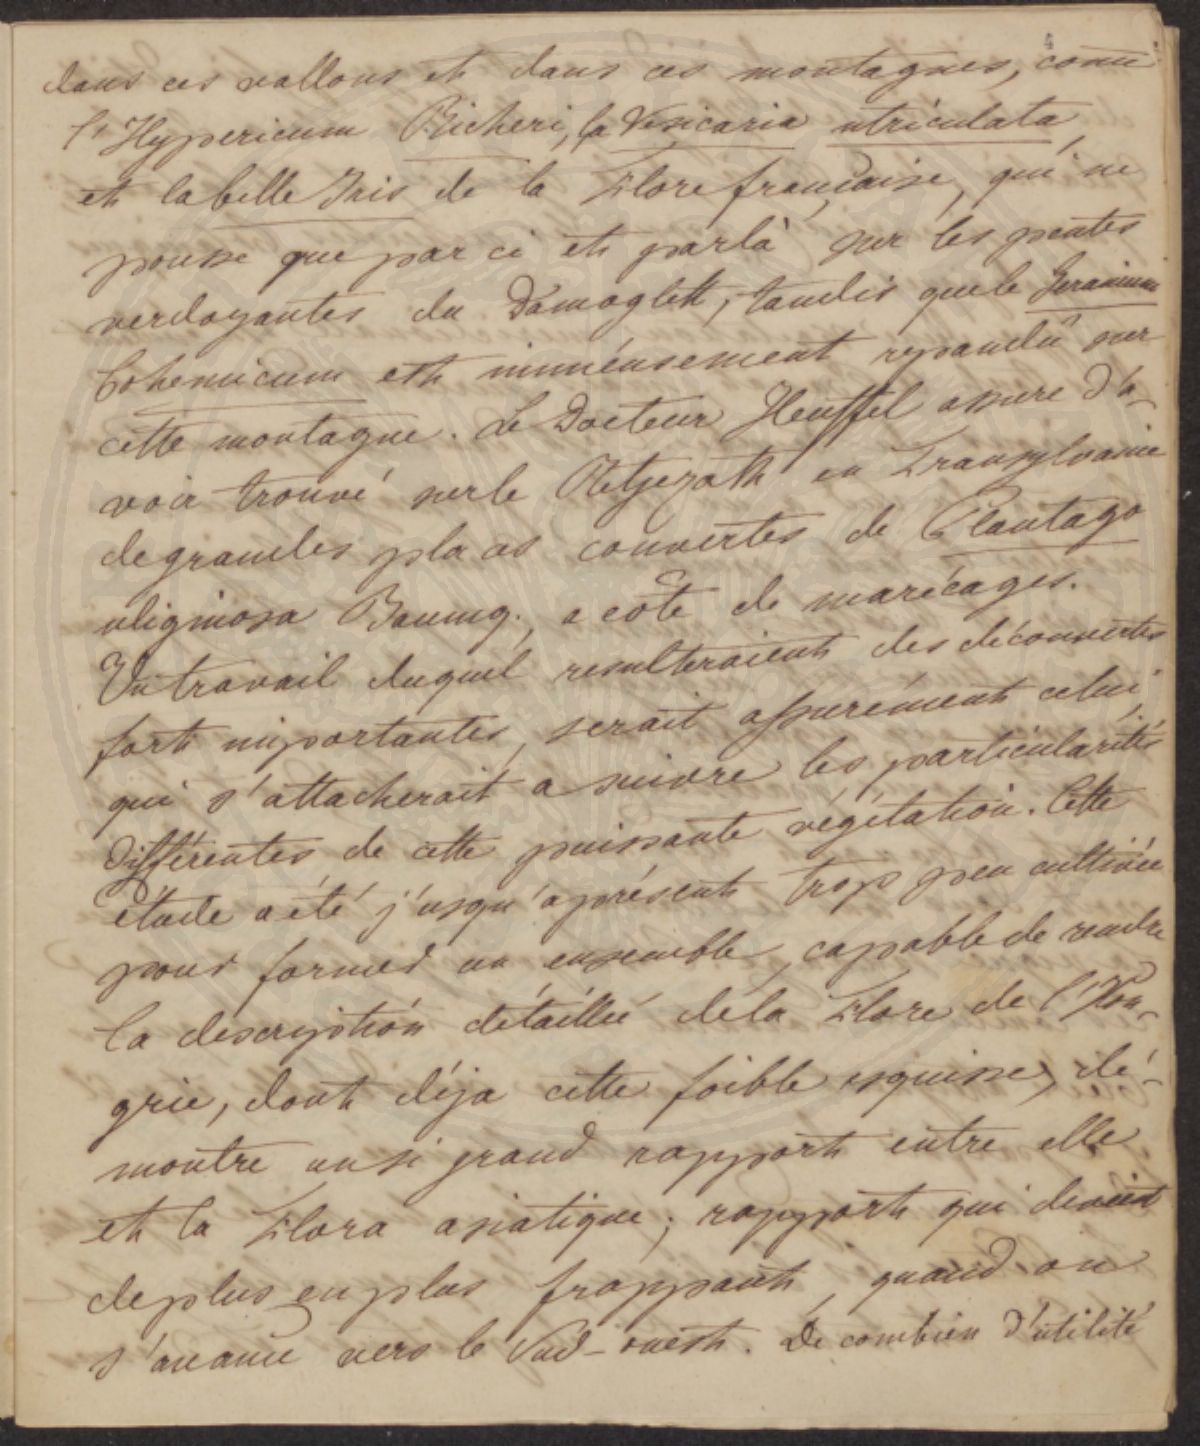 4
dans ces vallons et dans ces montagnes, come
l'Hypericum Richeri, la Vesicaria utriculata
et la belle Iris de la Flore française, qui ne
pousse que par ci et par là sur les pentes
verdoyantes du Domoglett, tandis que le Geranium
bohemicum est imménsement repandû sur
cette montagne. Le Docteur Heuffel assure d'a-
voir trouvé sur le Retjezath en Transylvanie
de grandes places couvertes de Plantago
uliginosa Baumg., a côté de marécages.
Un travail duquel resulteraient des découvertes
fort importantes, serait assurément celui,
qui s'attacherait a suivre les particularités
différentes de cette puissante végétation. Cette
étude a été j'usqu'aprésent trop peu cultivée
pour former un ensemble, capable de rendre
la description détaillée de la Flore de l'Hon-
grie, dont déja cette foible esquisse, dé-
montre un si grand rapport entre elle
et la Flora asiatique; rapport qui devient
de plus en plus frappant, quand on
s'avance vers le Sud-ouest. De combien d'utilité